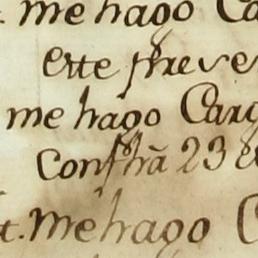 t. me hago Ca
este prese
me hago Carg
Consta 23 d
t. me hago C